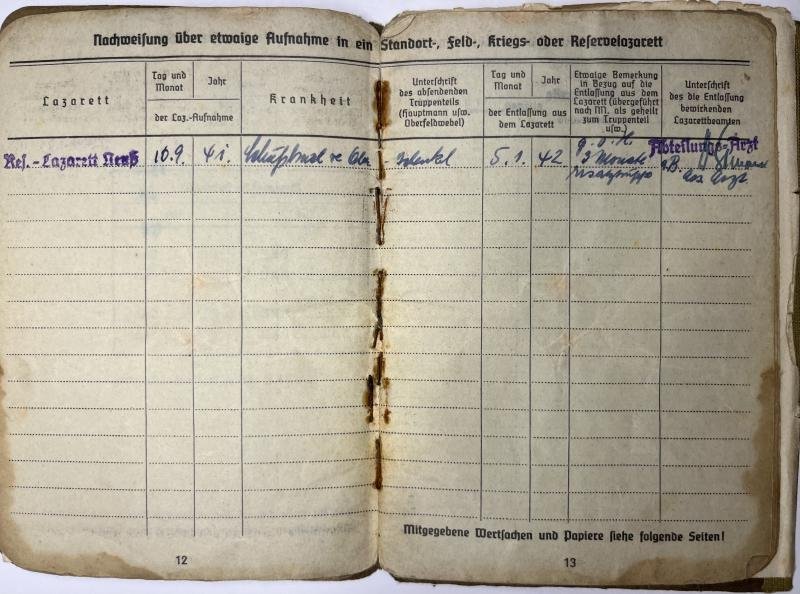 Nachweisung über etwaige Aufnahme in ein Standort-, Feld-, Kriegs- oder Reservelazarett
Lazarett
Tag und
Monat
Jahr
der Laz.-Aufnahme
Krankheit
Unterschrift
des absendenden
Truppenteils
(Hauptmann usw.
Oberfeldwebel)
Tag und
Monat
Jahr
der Entlassung aus
dem Lazarett
Etwaige Bemerkung
in Bezug auf die
Entlassung aus dem
Lazarett (übergeführt
nach M. als geheilt
zum Truppenteil
usw.)
Unterschrift
des die Entlassung
bewirkenden
Lazarettbeamten
Res.-Lazarett Neuß
10.9.
41.
5.1.
42
g.v.H.
3 Monate
Abteilungs-Arzt
Mitgegebene Wertsachen und Papiere siehe folgende Seiten!
12
13